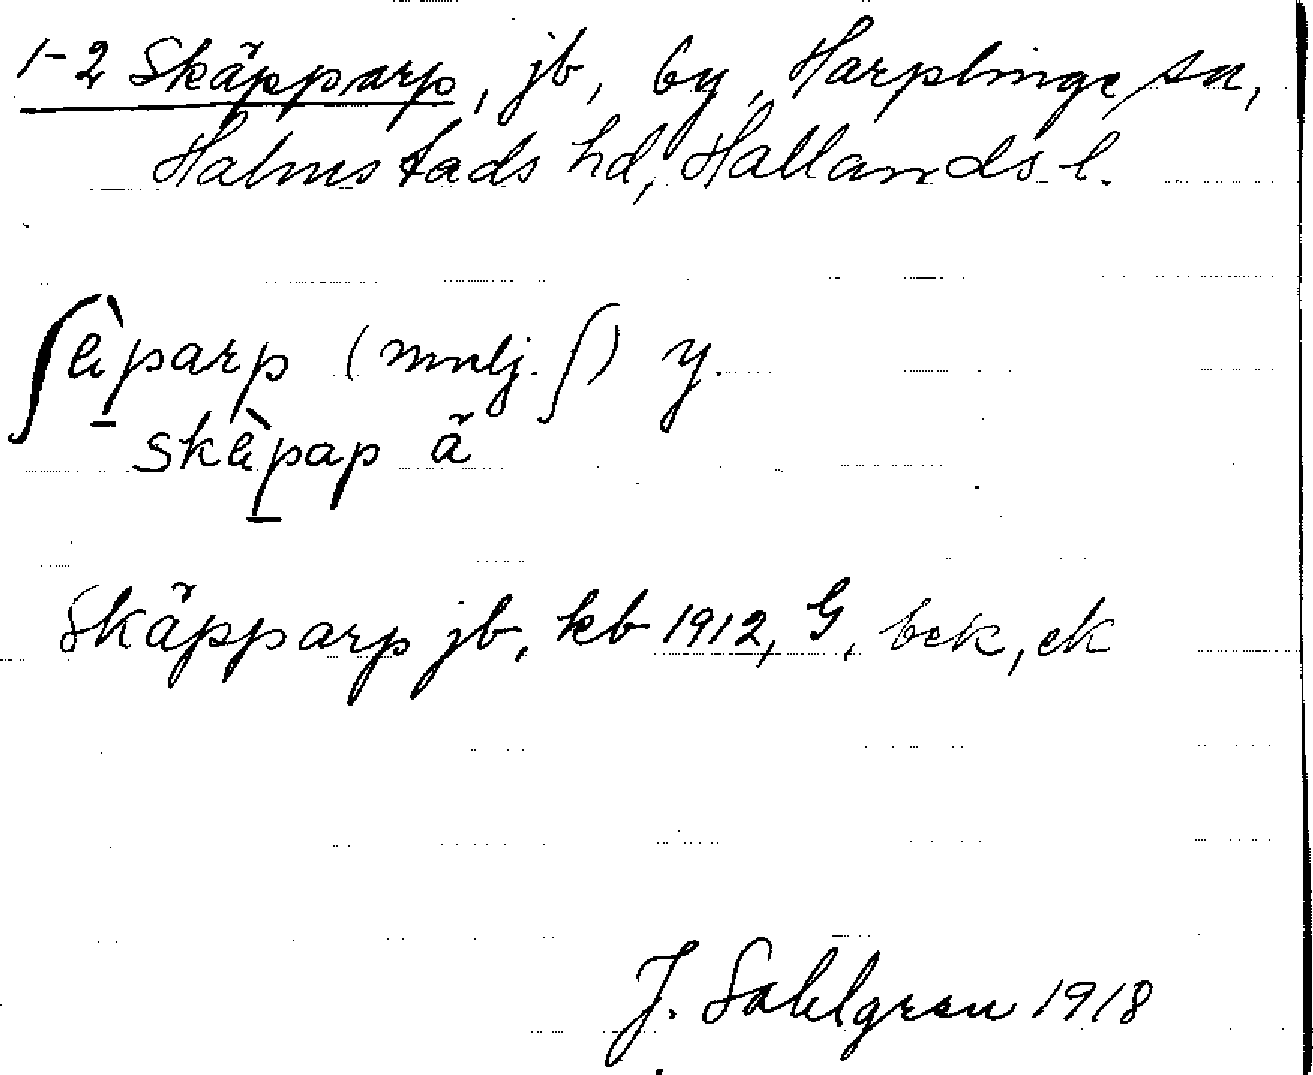 1-2 Skäpparp, jb, by, Harplinge sn,
Halmstads hd, Hallands l.
ʃäparp (mulj. ʃ) y.
skäpap ä
Skäpparp jb, kb 1912, G, bek, ek
J. Sahlgren 1918